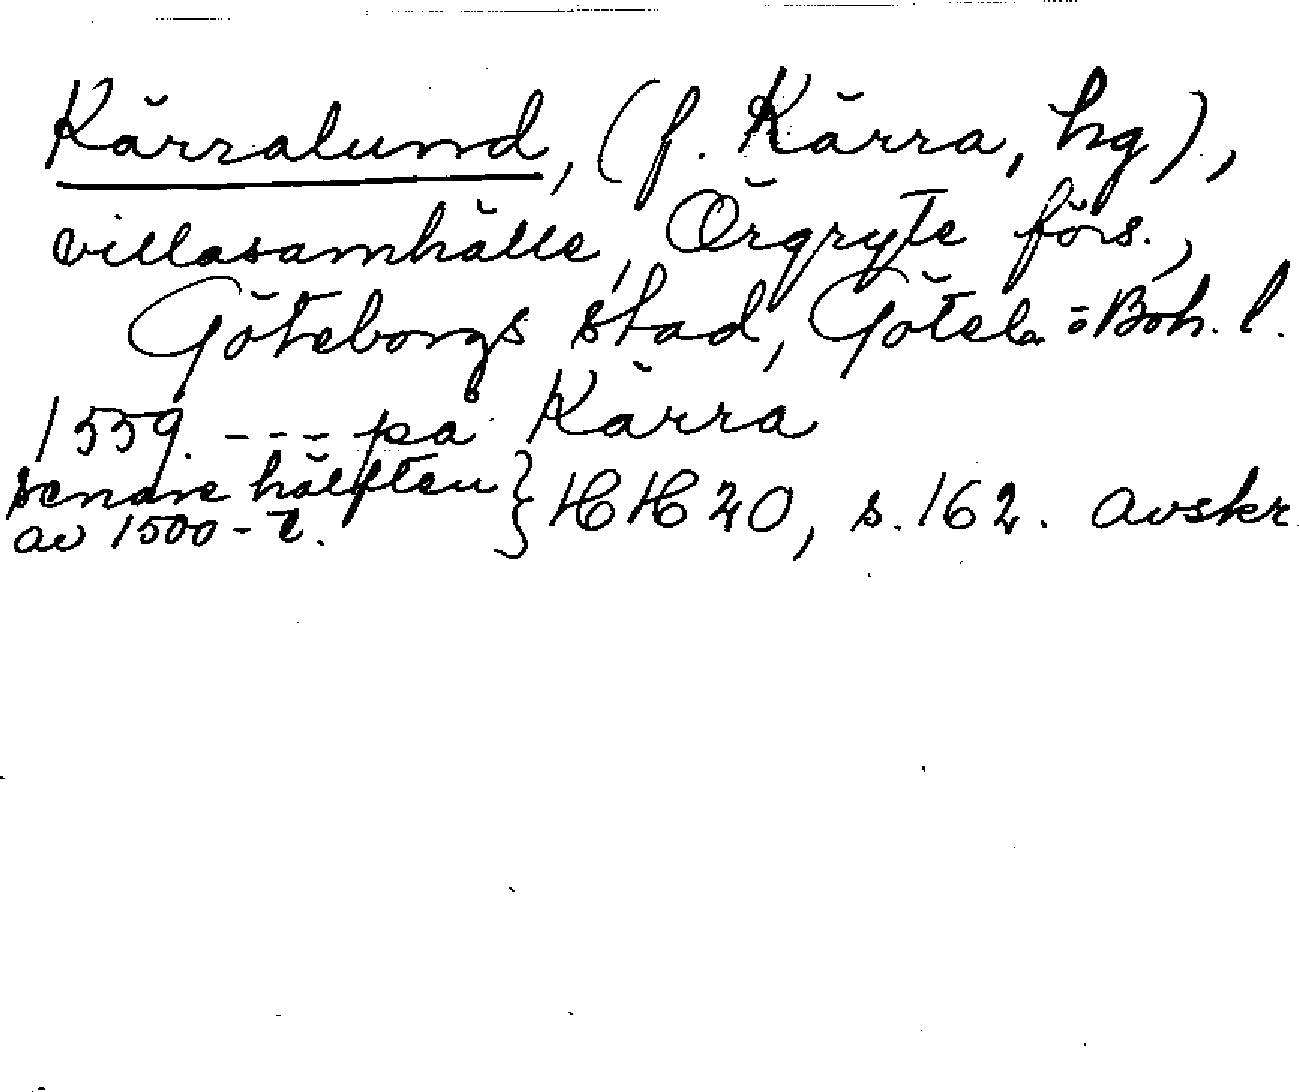 Kärralund, (f. Kärra, hg).,
villasamhälle, Örgryte förs.,
Göteborgs stad, Göteb. o. Boh. l.
1559. --- på Kärra
senare hälften } HH 20, s. 162. avskr.
av 1500-t.